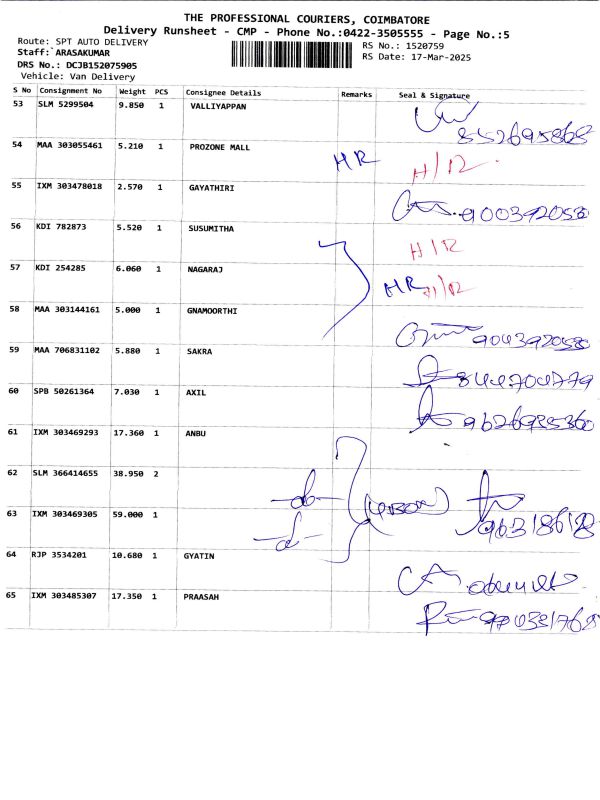 THE PROFESSIONAL COURIERS, COIMBATORE
Delivery Runsheet - CMP - Phone No.:0422-3505555 - Page No.:5
Route: SPT AUTO DELIVERY
RS No.: 1520759
Staff:`ARASAKUMAR
RS Date: 17-Mar-2025
DRS No.: DCJB152075905
Vehicle: Van Delivery
S No Consignment No Weight PCS Consignee Details Remarks Seal & Signature
53 SLM 5299504 9.850 1 VALLIYAPPAN
54 MAA 303055461 5.210 1 PROZONE MALL HR H/12
55 IXM 303478018 2.570 1 GAYATHIRI
56 KDI 782873 5.520 1 SUSUMITHA H/12
57 KDI 254285 6.060 1 NAGARAJ HR H/12
58 MAA 303144161 5.000 1 GNAMOORTHI
59 MAA 706831102 5.880 1 SAKRA
60 SPB 50261364 7.030 1 AXIL
61 IXM 303469293 17.360 1 ANBU
62 SLM 366414655 38.950 2
63 IXM 303469305 59.000 1
64 RJP 3534201 10.680 1 GYATIN
65 IXM 303485307 17.350 1 PRAASAH